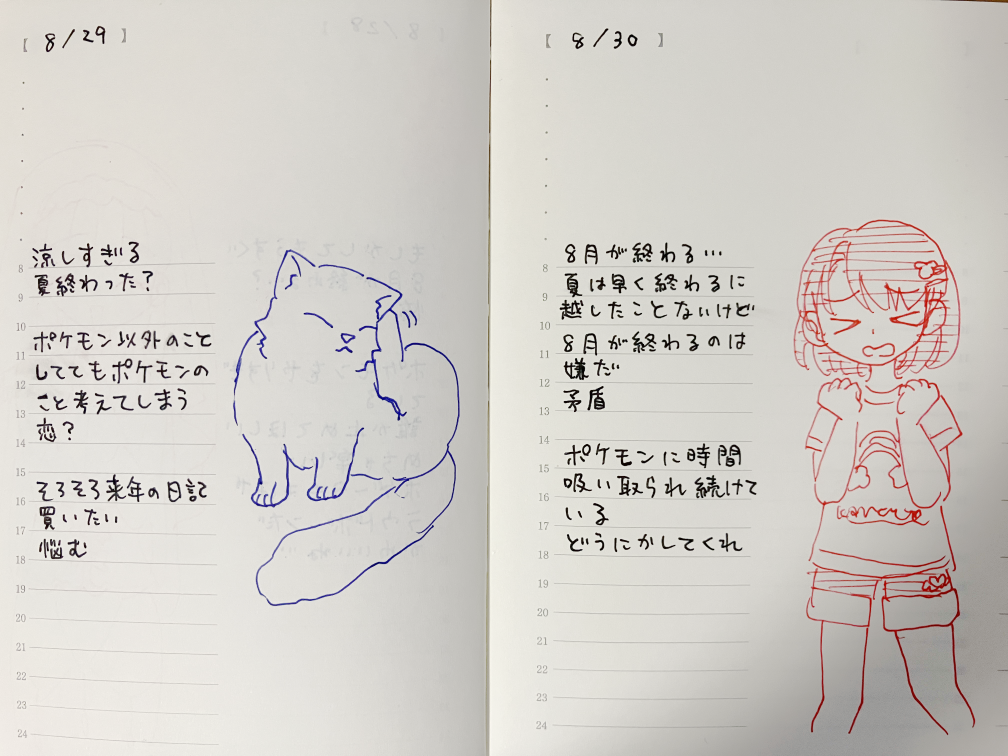 【 8/29 】
涼しすぎる
夏終わった?
ポケモン以外のこと
しててもポケモンの
こと考えてしまう
恋?
そろそろ来年の日記
買いたい
悩む
8
9
10
11
12
13
14
15
16
17
18
19
20
21
22
23
24
【 8/30 】
8月が終わる…
夏は早く終わるに
越したことないけど
8月が終わるのは
嫌だ
矛盾
ポケモンに時間
吸い取られ続けて
いる
どうにかしてくれ
8
9
10
11
12
13
14
15
16
17
18
19
20
21
22
23
24